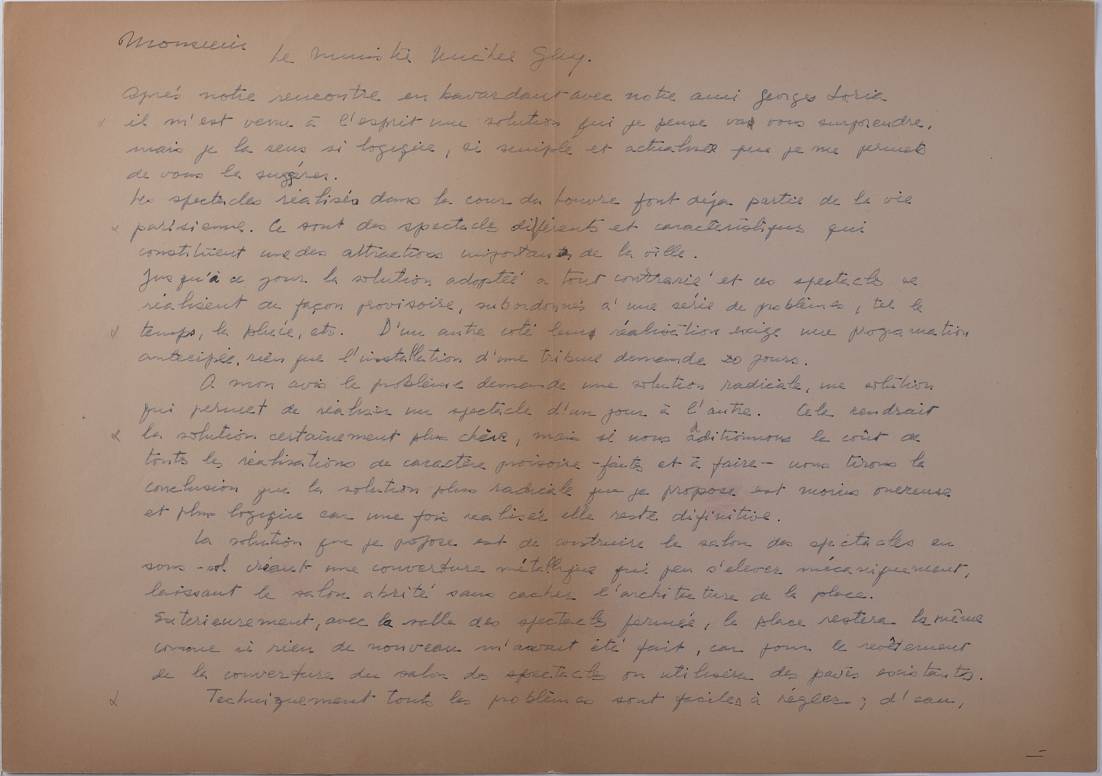 Monsieur le ministre Michel Guy.
après notre rencontre en bavardant avec notre ami Georges Loria
il m'est venu à l'esprit une solution qui je pense va vous surprendre,
mais je la sens si logique, si simple et que je me permet
de vous la suggérer.
Les spectacles réalisés dans la cour du Louvre font déja partie de la vie
parisienne. Ce sont des spectacle différents et caracteristiques qui
constituent une des attractions importantes de la ville.
Jusqu'à ce jour la solution adoptée a tout contrarié et ces spectacles se
réalisent de façon provisoire, subordonnés a une série de problèmes, tel le
temps, la pluie, etc. D'un autre coté leurs réalisation exige une programation
anticipée, rien que l'installation d'une tribune demande 20 jours.
A mon avis le problème demande une solution radicale, une solution
qui permet de réaliser un spectacle d'un jour à l'autre. Cela rendrait
la solution certainement plus chère, mais si nous aditionnons le coût de
touts les réalisations de caractère proisoire - faites et à faire - nous tirons la
conclusion que la solution plus radicale que je propose est moins onereuse
et plus logique car une fois realisée elle reste difinitive.
La solution que je propose est de construire le salon des spectacles en
sous-sol créant une couverture métallique qui peu s'elever mécaniquement,
laissant le salon abrité sans cacher l'architecture de la place.
Exterieurement, avec la salle des spectacles fermée, la place restera la même
comme si rien de nouveau n'avait été fait, car pour le revêtement
de la couverture du salon des spectacles on utilisera des pavés existants.
Techniquement touts les problèmes sont faciles à régler; d'eau,